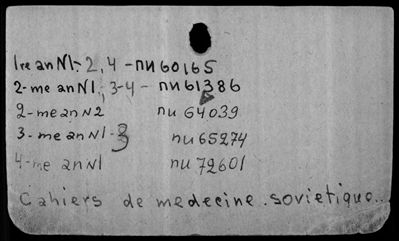 1re an N1-2,4 - nu 60165
2-me an N1, 3-4 - nu 61386
2-me an N2 nu 64039
3-me an N1-3 nu 65274
4-me an N1 nu 72601
Cahiers de medecine sovietique...